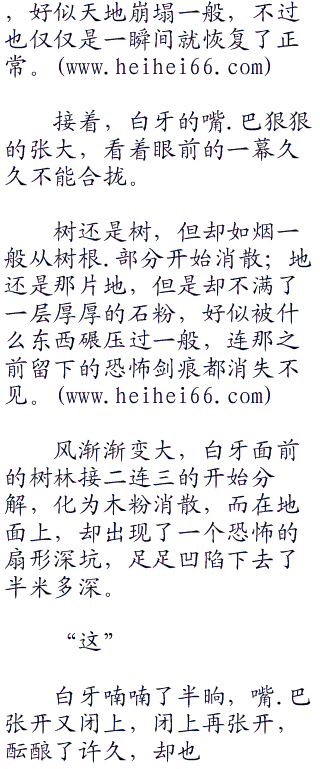 ，好似天地崩塌一般，不过
也仅仅是一瞬间就恢复了正
常。(www.heihei66.com)
接着，白牙的嘴.巴狠狠
的张大，看着眼前的一幕久
久不能合拢。
树还是树，但却如烟一
般从树根.部分开始消散；地
还是那片地，但是却不满了
一层厚厚的石粉，好似被什
么东西碾压过一般，连那之
前留下的恐怖剑痕都消失不
见。(www.heihei66.com)
风渐渐变大，白牙面前
的树林接二连三的开始分
解，化为木粉消散，而在地
面上，却出现了一个恐怖的
扇形深坑，足足凹陷下去了
半米多深。
“这”
白牙喃喃了半晌，嘴.巴
张开又闭上，闭上再张开，
酝酿了许久，却也